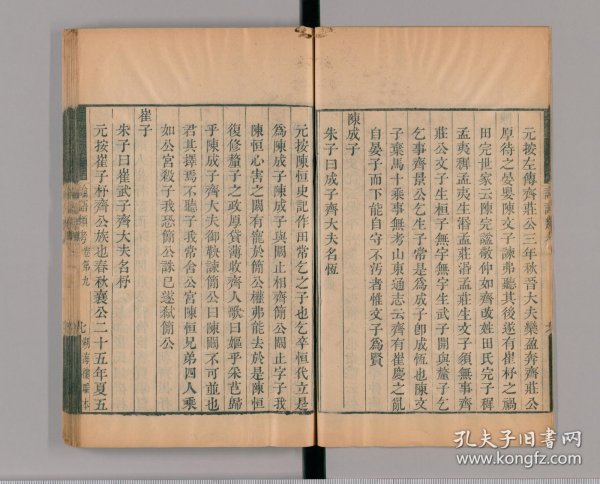 元按左傳齊莊公三年秋晉大夫欒盈奔齊莊公
厚待之晏嬰陳文子諫弗聽其後遂有崔杼之禍
田完世家云陳完諡敬仲如齊改姓田氏完子穉
孟夷穉孟夷生湣孟莊湣孟莊生文子須無事齊
莊公文子生桓子無宇無宇生武子開與釐子乞
乞事齊景公乞生子常是爲成子卽成恆也陳文
子棄馬十乘事無考山東通志云齊有崔慶之亂
自晏子而下能自守不汚者惟文子爲賢
陳成子
朱子曰成子齊大夫名恆
元按陳恒史記作田常乞之子也乞卒恒代立是
爲陳成子陳成子與闞止相齊簡公闞止字子我
陳恒心害之闞有寵於簡公權弗能去於是陳恒
復修釐子之政厚貸薄收齊人歌曰嫗乎采芑歸
乎陳成子齊大夫御鞅諫簡公曰陳闞不可並也
君其擇焉不聽子我常舍公宮陳恒兄弟四人乘
如公宮殺子我恐簡公誅已遂弑簡公
崔子
朱子曰崔武子齊大夫名杼
元按崔子杼齊公族也春秋襄公二十五年夏五
論語類考 卷第九
九 湖海樓雕本
孔夫子旧书网
www.kongfz.com